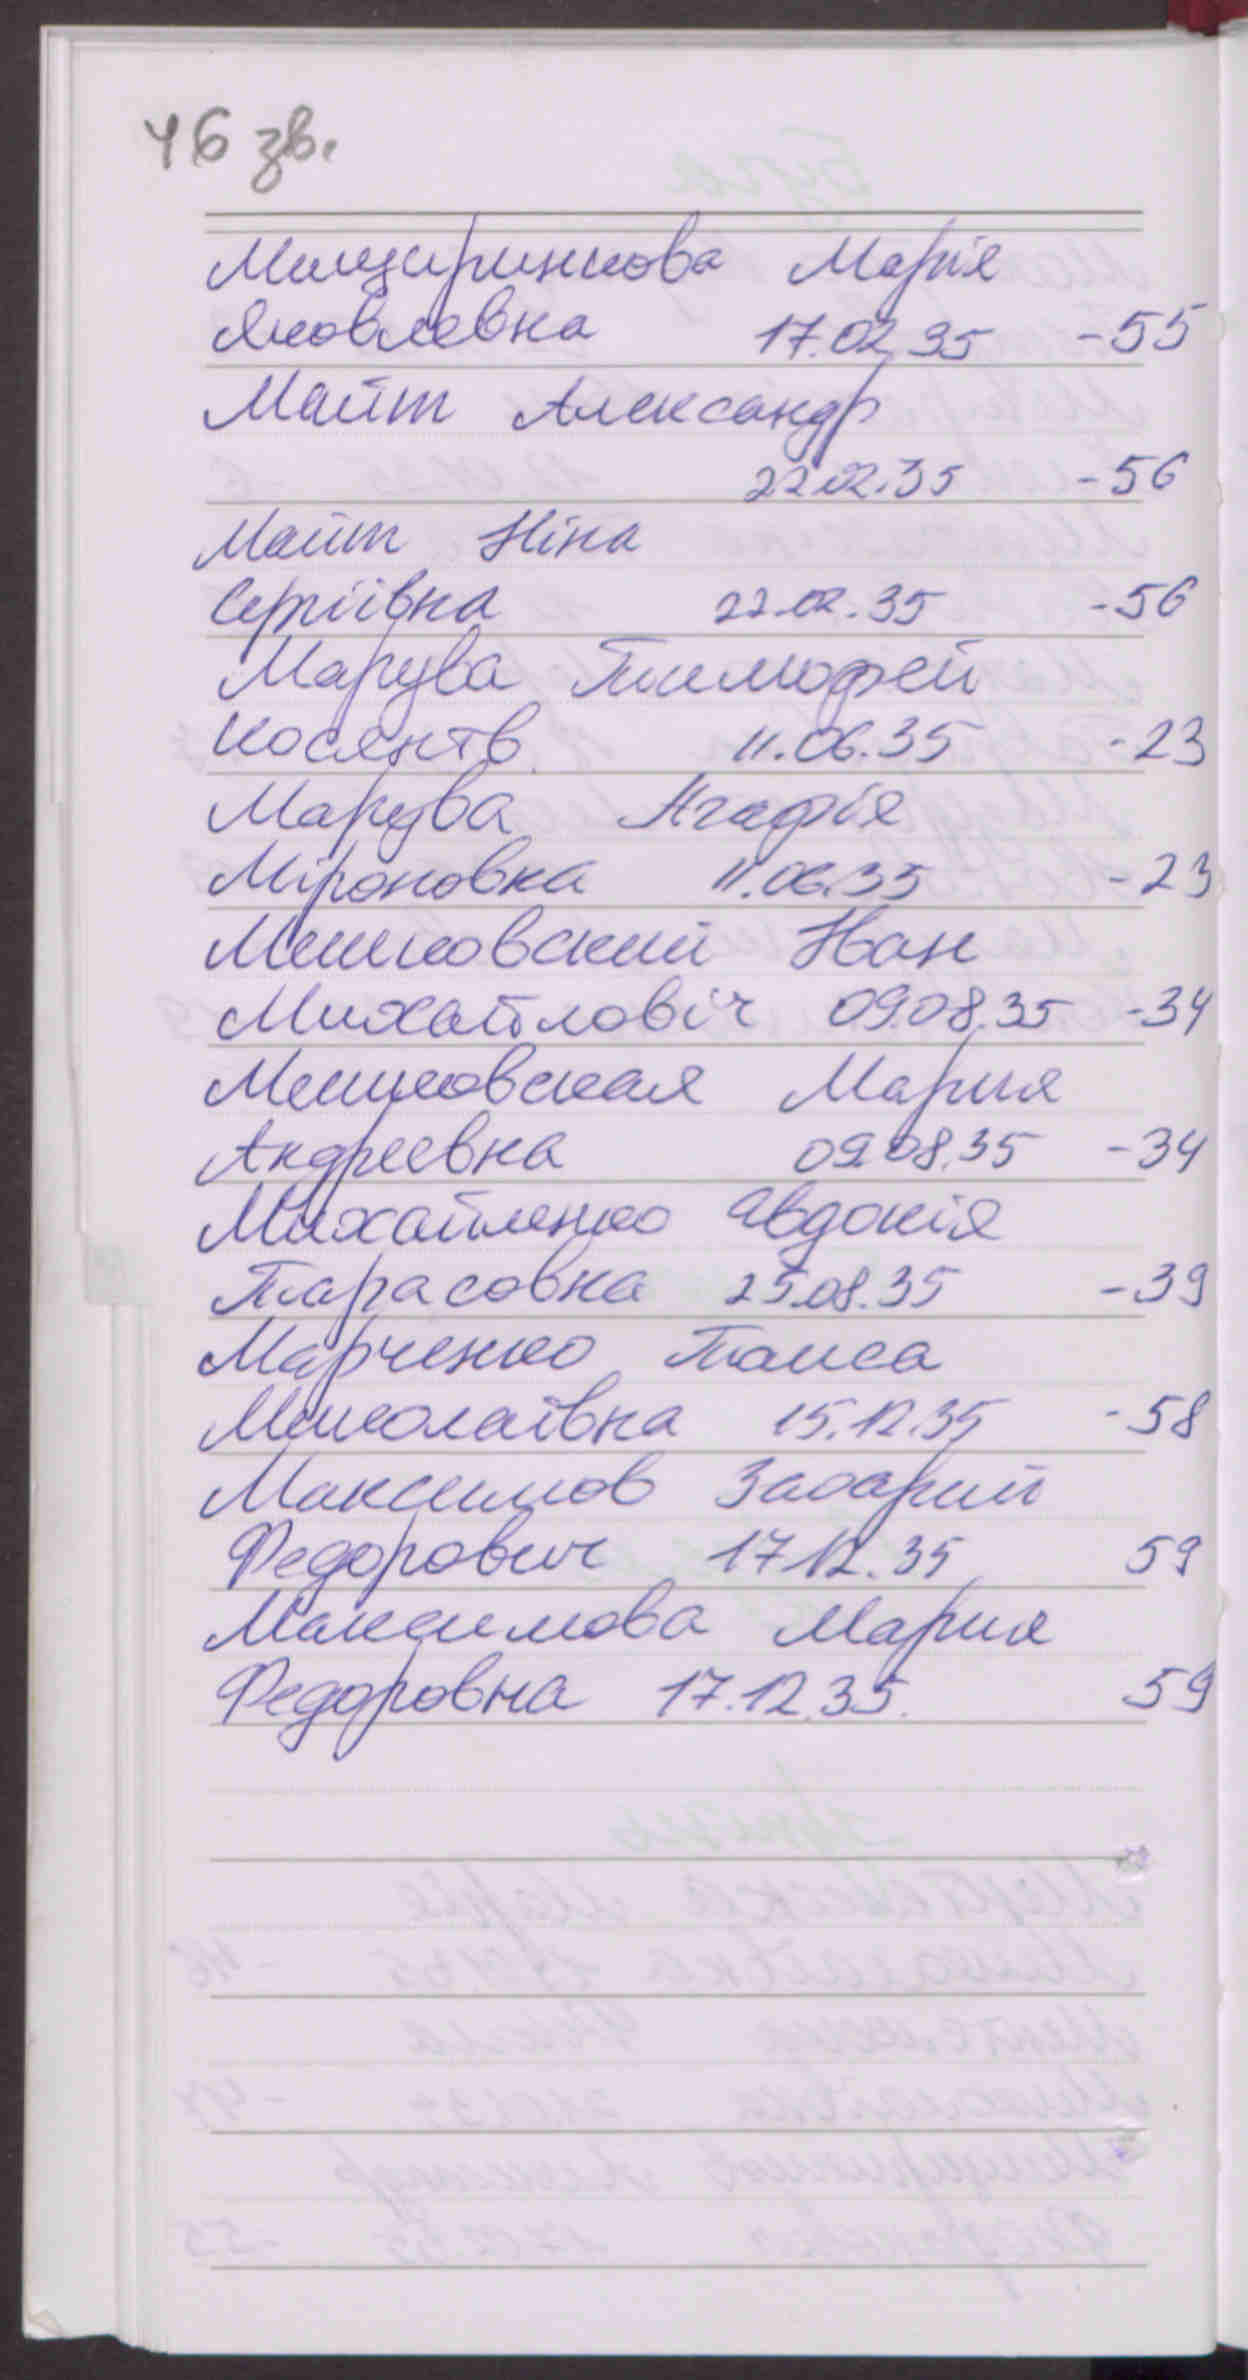 46 зв.
Мищиринкова Марія
Яковлевна 17.02.35 -55
Майт Александр
22.02.35 -56
Майт Ніна
Сергіївна 22.02.35 -56
Марува Тимофей
11.06.35 -23
Марува Агафія
Міроновка 11.06.35 -23
Мешковский Иван
Михайловіч 09.08.35 -34
Мешковская Мария
Андреевна 09.08.35 -34
Михайленко Явдокія
Тарасовна 25.08.35 -39
Марченко Таиса
Миколаївна 15.12.35 -58
Максимов Захарий
Федорович 17.12.35 59
Максимова Мария
Федоровна 17.12.35. 59